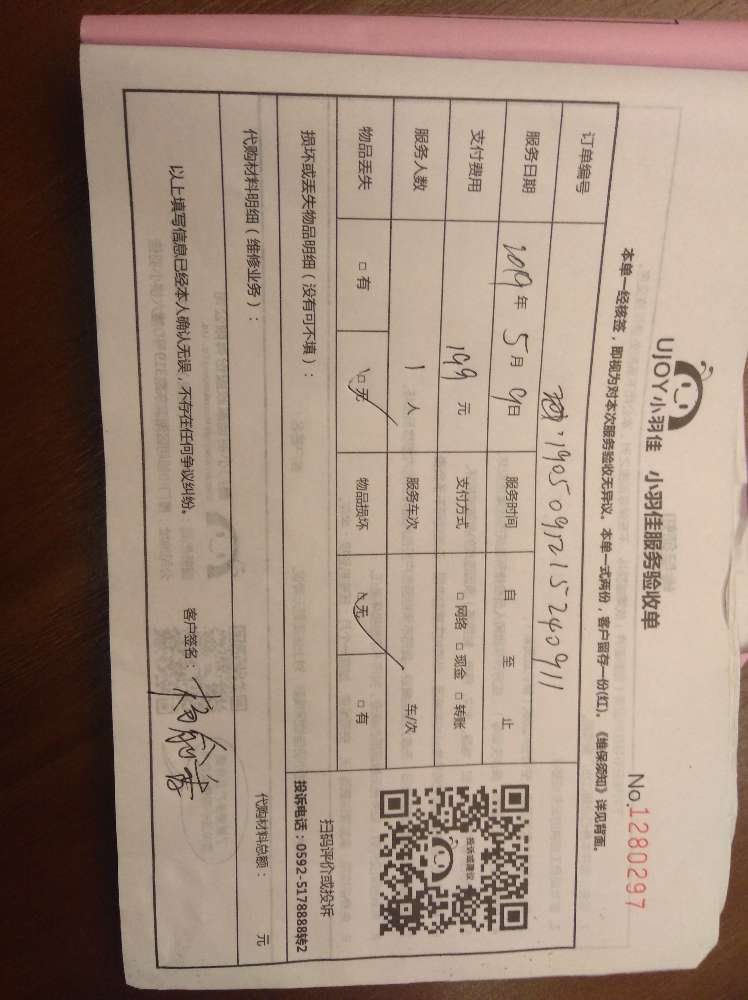 UJOY小羽佳 小羽佳服务验收单
No.1280297
本单一经核签，即视为对本次服务验收无异议。本单一式两份，客户留存一份(红)。《维保须知》详见背面。
订单编号 1905091215240911
服务日期 2019年5月9日 服务时间 自 至 止
支付费用 199元 支付方式 □网络 □现金 □转账
服务人数 1人 服务车次 车/次
物品丢失 □有 □无 物品损坏 □无 □有
投诉或建议
扫码评价或投诉
投诉电话：0592-5178888转2
损坏或丢失物品明细（没有可不填）：
代购材料明细（维修业务）：
代购材料总额： 元
以上填写信息已经本人确认无误，不存在任何争议纠纷。 客户签名：